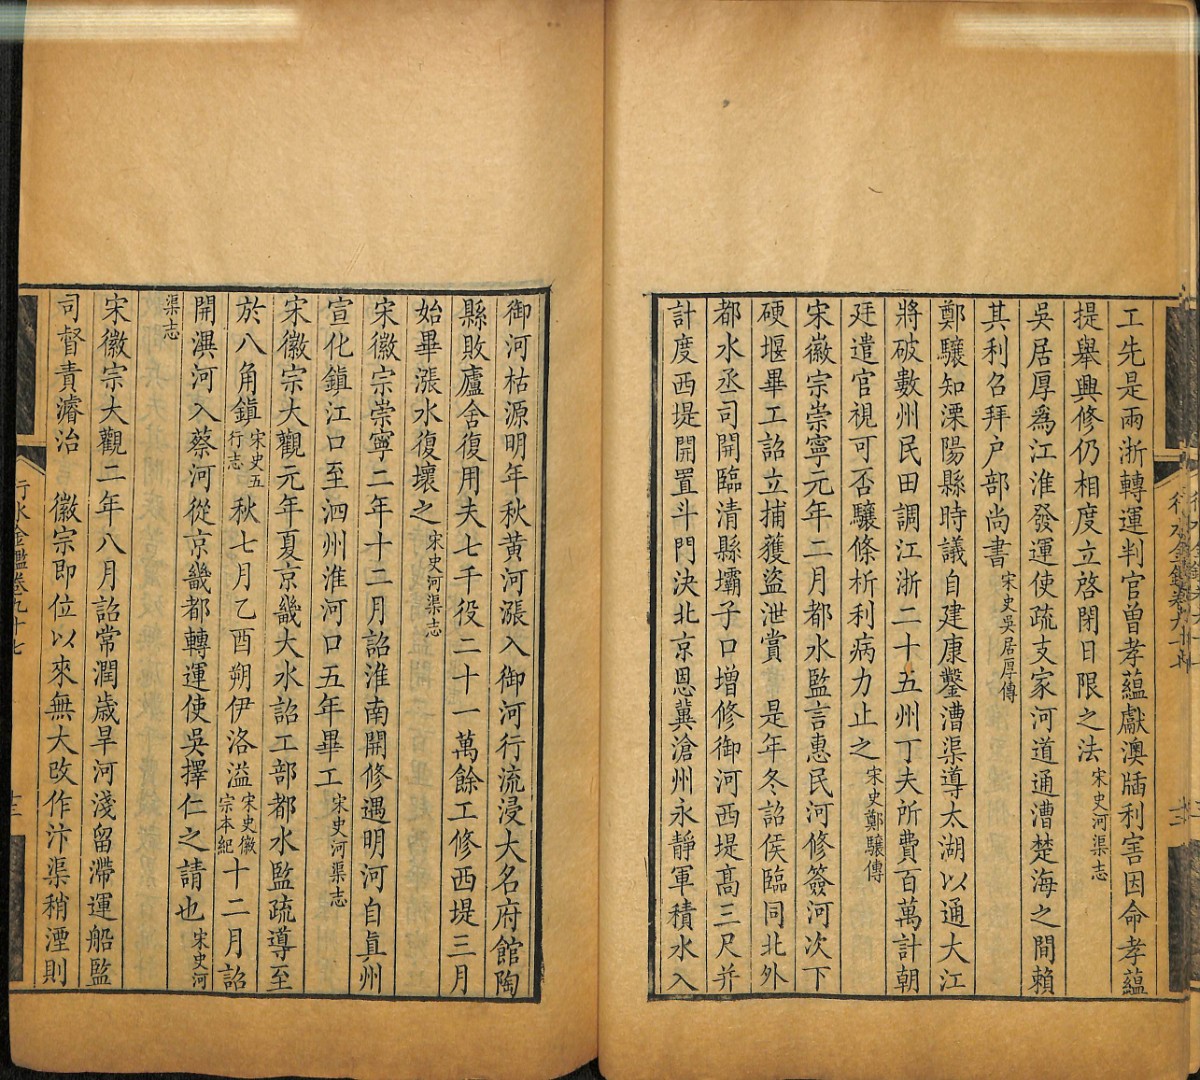 工先是兩浙轉運判官曽孝蘊獻澳牐利害因命孝蘊
提舉興修仍相度立啓閉日限之法宋史河渠志
吳居厚爲江淮發運使疏支家河道通漕楚海之間賴
其利召拜户部尚書宋史吳居厚傳
鄭驤知溧陽縣時議自建康鑿漕渠導太湖以通大江
將破數州民田調江浙二十五州丁夫所費百萬計朝
廷遣官視可否驤條析利病力止之宋史鄭驤傳
宋徽宗崇寧元年二月都水監言惠民河修簽河次下
硬堰畢工詔立捕獲盜泄賞　是年冬詔侯臨同北外
都水丞司開臨清縣壩子口增修御河西堤髙三尺并
計度西堤開置斗門決北京恩冀滄州永靜軍積水入
御河枯源明年秋黄河漲入御河行流浸大名府館陶
縣敗廬舍復用夫七千役二十一萬餘工修西堤三月
始畢漲水復壞之宋史河渠志
宋徽宗崇寧二年十二月詔淮南開修遇明河自真州
宣化鎮江口至泗州淮河口五年畢工宋史河渠志
宋徽宗大觀元年夏京畿大水詔工部都水監疏導至
於八角鎮宋史五行志秋七月乙酉朔伊洛溢宋史徽宗本紀十二月詔
開潩河入蔡河從京畿都轉運使吳擇仁之請也宋史河
渠志
宋徽宗大觀二年八月詔常潤歲旱河淺留滯運船監
司督責濬治　徽宗即位以來無大改作汴渠稍湮則
行水金鑑卷九十七
十三